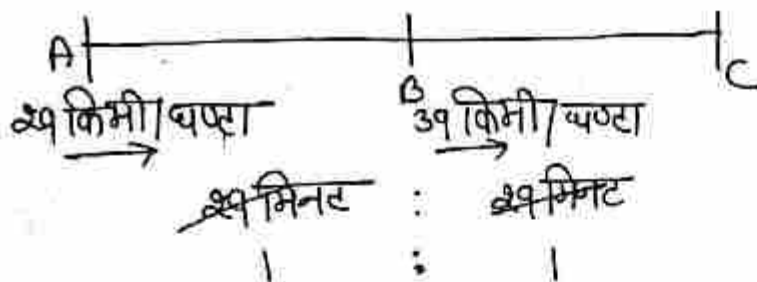 A B C
२१ किमी/घण्टा ३१ किमी/घण्टा
२१ मिनट : २१ मिनट
1 : 1